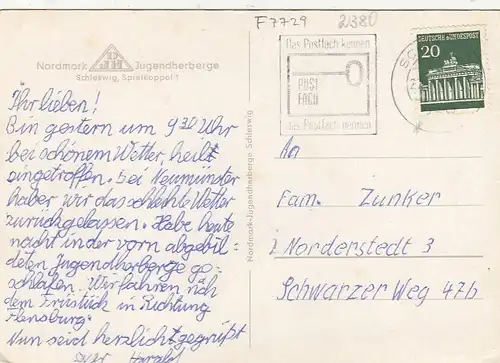 F7729
21380
Nordmark Jugendherberge
DJH
Schleswig, Spielkoppel 1
Ihr lieben!
Bin gestern um 9 30 Uhr
bei schönem Wetter, heilt
eingetroffen. Bei Neumünster
haber wir das schlechte Wetter
zurückgelassen. Habe heute
nacht in der vorn abgebil=
deten Jugendherberge ge=
schlafen. Wir fahren nach
dem Frühstück in Richtung
Flensburg.
Nun seid herzlicht gegrüßt
Harald
Nordmark-Jugendherberge Schleswig
Das Postfach kennen
POST
FACH
das Postfach nennen
DEUTSCHE BUNDESPOST
20
An
Fam. Zunker
2 Norderstedt 3
Schwarzer Weg 47b